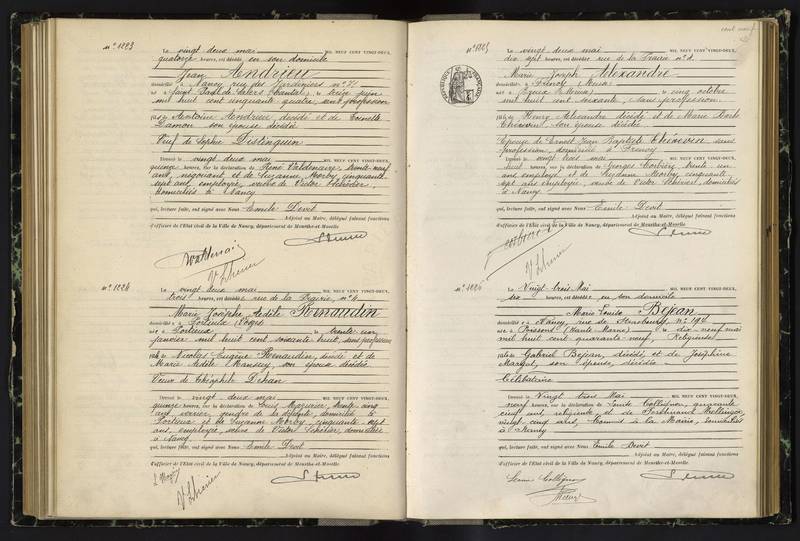 N° 1223
Le vingt deux mai MIL NEUF CENT VINGT-DEUX,
quatorze heures, est décédé en son domicile
Jean
domicilié à Nancy rue des Jardiniers n°
né à Saint
mil huit cent cinquante quatre, sans profession
fils de Antoine décédé et de
son épouse décédée
Veuf de Sophie Distinguin
Dressé le vingt deux mai MIL NEUF CENT VINGT-DEUX,
quinze heures, sur la déclaration de René Valdenaire trente neuf
ans, négociant, et de Suzanne Morby cinquante
sept ans, employée, veuve de Victor
domiciliés à Nancy
qui, lecture faite, ont signé avec Nous Emile Devit
Adjoint au Maire, délégué faisant fonctions
d'officier de l'État civil de la Ville de Nancy, département de Meurthe-et-Moselle
N° 1224
Le vingt deux mai MIL NEUF CENT VINGT-DEUX,
trois heures, est décédée rue de la Prairie, n° 4
Marie Josèphe Renaudin
domiciliée à Portieux (Vosges)
née à Portieux le trente un
janvier mil huit cent soixante huit, sans profession
fille de Nicolas Eugène Renaudin, décédé et de
Marie son épouse décédée
Veuve de Théophile
Dressé le vingt deux mai MIL NEUF CENT VINGT-DEUX,
quinze heures, sur la déclaration de Louis trente cinq
ans, verrier, gendre de la défunte, domicilié à
Portieux et de Suzanne Morby, cinquante sept
ans, employée, veuve de Victor domiciliée
à Nancy
qui, lecture faite, ont signé avec Nous Emile Devit
Adjoint au Maire, délégué faisant fonctions
d'officier de l'État civil de la Ville de Nancy, département de Meurthe-et-Moselle
cent neuf
N° 1225
Le vingt deux mai MIL NEUF CENT VINGT-DEUX,
dix sept heures, est décédée rue de la Prairie n° 4
Marie Joseph Alexandre
domiciliée à (Meuse)
née à (Meuse) le cinq octobre
mil huit cent soixante, sans profession
fille de Henry Alexandre décédé et de Marie
son épouse décédée
Epouse de Ernest Jean Baptiste sans
profession, domicilié à
Dressé le vingt trois mai MIL NEUF CENT VINGT-DEUX,
huit heures, sur la déclaration de Georges trente un
ans employé et de Suzanne Morby, cinquante
sept ans employée, veuve de Victor domiciliés
à Nancy
qui, lecture faite, ont signé avec Nous Emile Devit
Adjoint au Maire, délégué faisant fonctions
d'officier de l'État civil de la Ville de Nancy, département de Meurthe-et-Moselle
N° 1226
Le Vingt trois Mai MIL NEUF CENT VINGT-DEUX,
heures, est décédée en son domicile
Marie Louise Bejean
domiciliée à Nancy, rue de Strasbourg, n° 194
née à Poissons (Haute Marne) le dix-neuf mai
mil huit cent quarante-neuf, Religieuse
fille de Gabriel Bejean, décédé, et de Joséphine
Margot, son épouse, décédée
Célibataire
Dressé le Vingt trois Mai MIL NEUF CENT VINGT-DEUX,
neuf heures, sur la déclaration de Louise Collignon, quarante
cinq ans, religieuse, et de Ferdinand
vingt cinq ans, Commis à la Mairie, domiciliés
à Nancy
qui, lecture faite, ont signé avec Nous Emile Devit
Adjoint au Maire, délégué faisant fonctions
d'officier de l'État civil de la Ville de Nancy, département de Meurthe-et-Moselle
Collignon